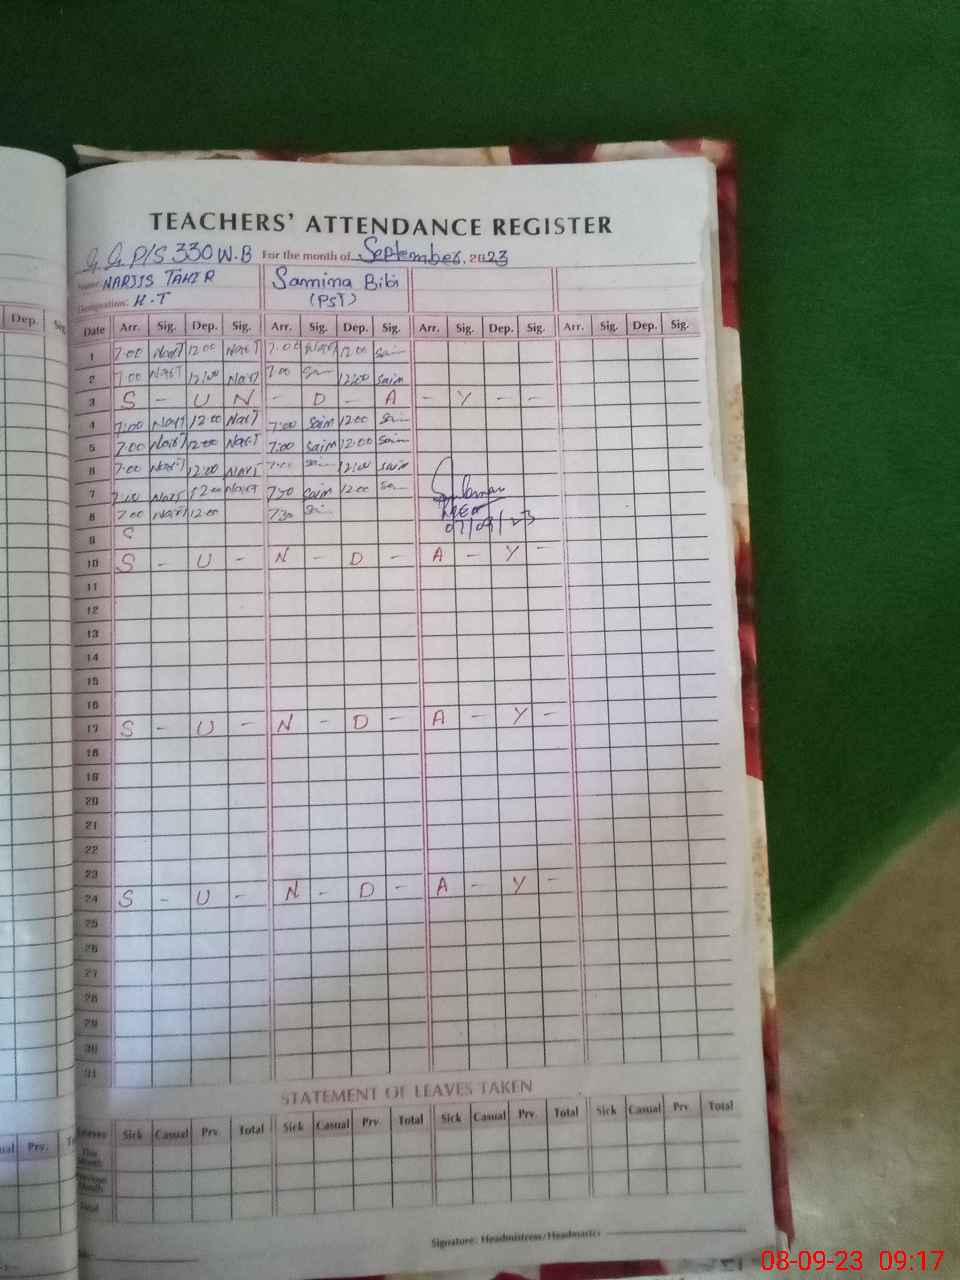 TEACHERS' ATTENDANCE REGISTER
G.G.P/S 330 W.B For the month of September, 2023
Name: NARJIS TAHIR Samina Bibi
Designation: H.T (PST)
Dep. Sig.
Date Arr. Sig. Dep. Sig. Arr. Sig. Dep. Sig. Arr. Sig. Dep. Sig. Arr. Sig. Dep. Sig.
1 7:00 NarT 12:00 NarT 7:00 12:00 Saim
2 7:00 NarT 12:00 NarT 7:00 12:00 Saim
3 S - U N - D - A - Y - -
4 7:00 NarT 12:00 NarT 7:00 Saim 12:00
5 7:00 NarT 12:00 NarT 7:00 Saim 12:00
6 7:00 NarT 12:00 NarT 7:00 12:00 Saim
7 7:00 NarT 12:00 NarT 7:30 Saim 12:00
8 7:00 NarT 12:00 7:30
07/09/23
9 S
10 S - U - N - D - A - Y -
11
12
13
14
15
16
17 S - U - N - D - A - Y -
18
19
20
21
22
23
24 S - U - N - D - A - Y -
25
26
27
28
29
30
31
STATEMENT OF LEAVES TAKEN
Leaves Sick Casual Prv. Total Sick Casual Prv. Total Sick Casual Prv. Total Sick Casual Prv. Total
This Month
Previous Month
Total
Prv.
Signature: Headmistress/Headmaster
08-09-23 09:17